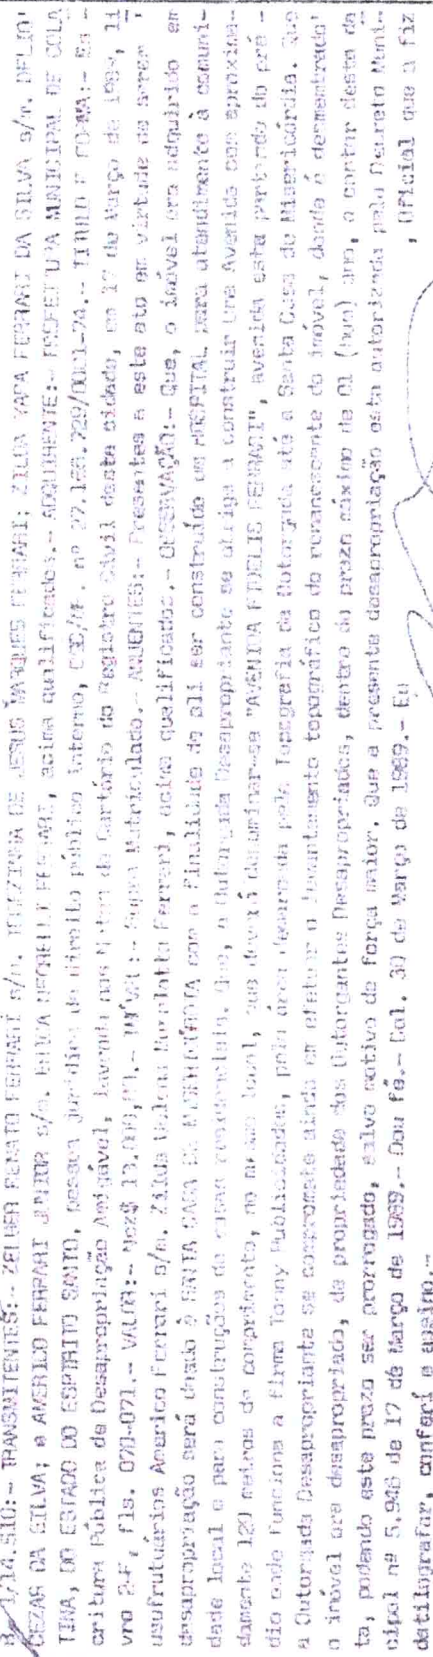 R. 1/14.510:- TRANSMITENTES:- ZELUER RENATO FERRARI s/m. DE JESUS MARQUES FERRARI; ZILDA YARA FERRARI DA SILVA s/m. DELIO
CEZAR DA SILVA; e AMERICO FERRARI JUNIOR s/m. FERRARI, acima qualificados.- ADQUIRENTE:- PREFEITURA MUNICIPAL DE COLA
TINA, DO ESTADO DO ESPIRITO SANTO, pessoa jurídica de direito público interno, CGC/MF. nº 27.165.729/0001-74.- TITULO E FORMA:- Es -
critura Pública de Desapropriação Amigável, lavrada nas Notas do Cartório do Registro Civil desta cidade, em 17 de Março de 1989, li
vro 2-F, fls. 070-071.- VALOR:- NCz$ 13.000,00.- IMÓVEL:- Supra Matriculado.- ANUENTES:- Presentes a este ato em virtude de serem
usufrutuários Americo Ferrari s/m. Zilda Ferrari, acima qualificados.- OBSERVAÇÃO:- Que, o imóvel ora adquirido em
desapropriação será doado à SANTA CASA DE MISERICÓRDIA com a finalidade de ali ser construído um HOSPITAL para atendimento à comuni-
dade local e para construções de casas Que, a Outorgada Desapropriante se obriga a construir uma Avenida com aproxima-
damente 120 metros de comprimento, no mesmo local, que deverá denominar-se "AVENIDA FIDELIS FERRARI", avenida esta partindo do pré -
dio onde funciona a firma Tommy Publicidades, pela área demarcada pela Topografia da Outorgada até a Santa Casa de Misericórdia. Que
a Outorgada Desapropriante se compromete ainda em efetuar o levantamento topográfico do remanescente do imóvel, donde é desmembrado
o imóvel ora desapropriado, de propriedade dos Outorgantes Desapropriados, dentro do prazo máximo de 01 (hum) ano, a contar desta da
ta, podendo este prazo ser prorrogado, salvo motivo de força maior. Que a presente desapropriação esta autorizada pelo Decreto Muni-
cipal nº 5.946 de 17 de Março de 1989.- Dou fé.- Col. 30 de Março de 1989.- Eu , Oficial que a fiz
datilografar, conferí e assino.-